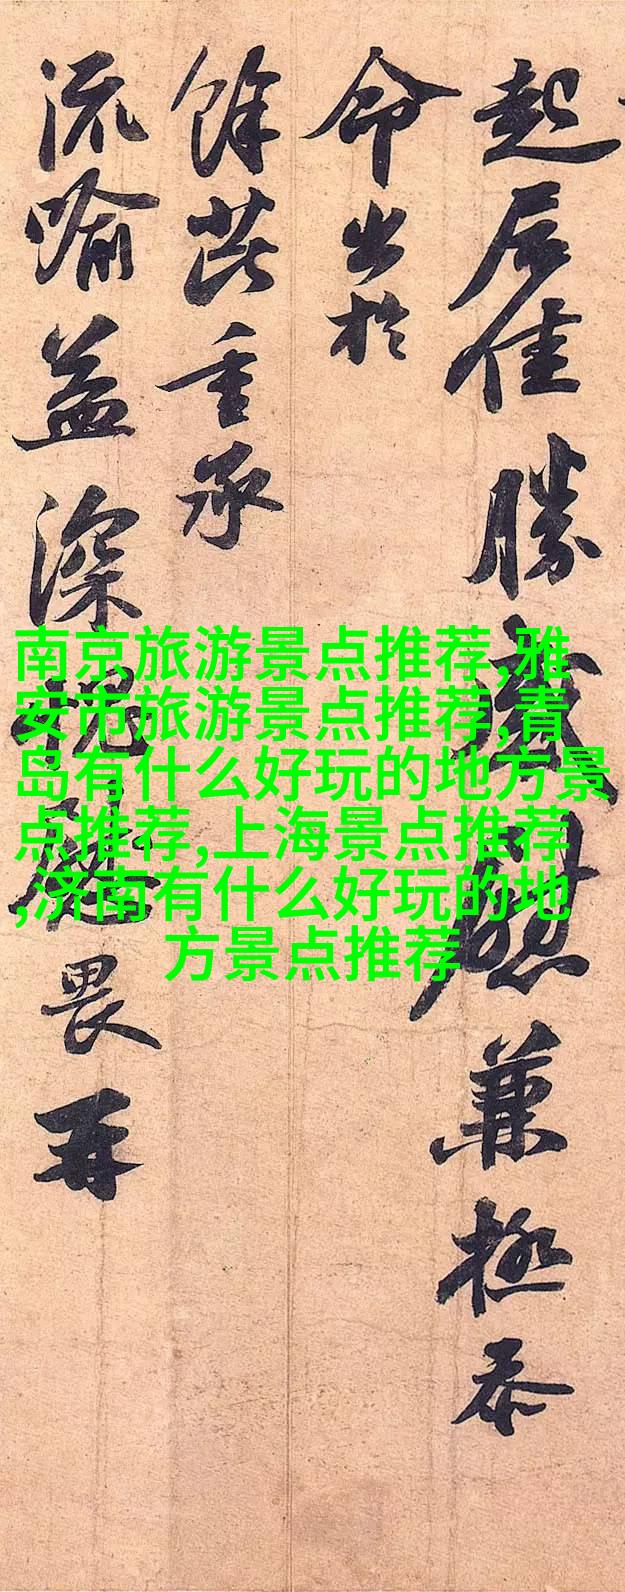 起居佳勝感慰兼極忝
命出於
餘芘重承
流喻益深愧畏再
南京旅游景点推荐,雅
安市旅游景点推荐,青
岛有什么好玩的地方景
点推荐,上海景点推荐
,济南有什么好玩的地
方景点推荐